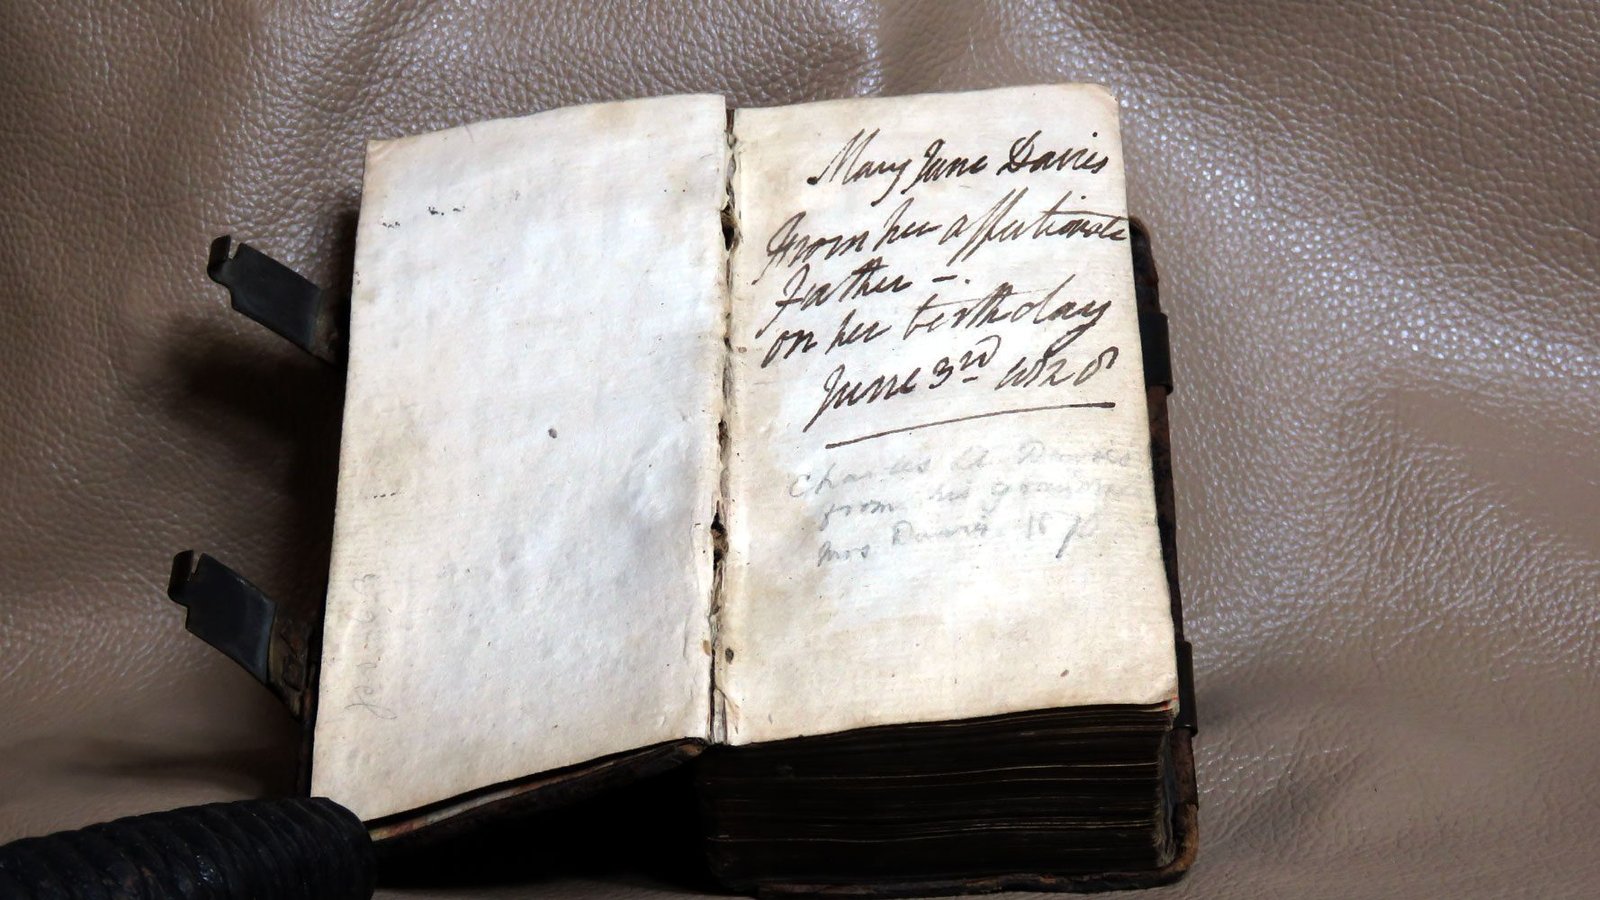 Mary Jane Davies
From her affectionate
Father -.
on her birthday
June 3rd 1828
Charles A Davies
from his grandma
Mrs Davies 1870